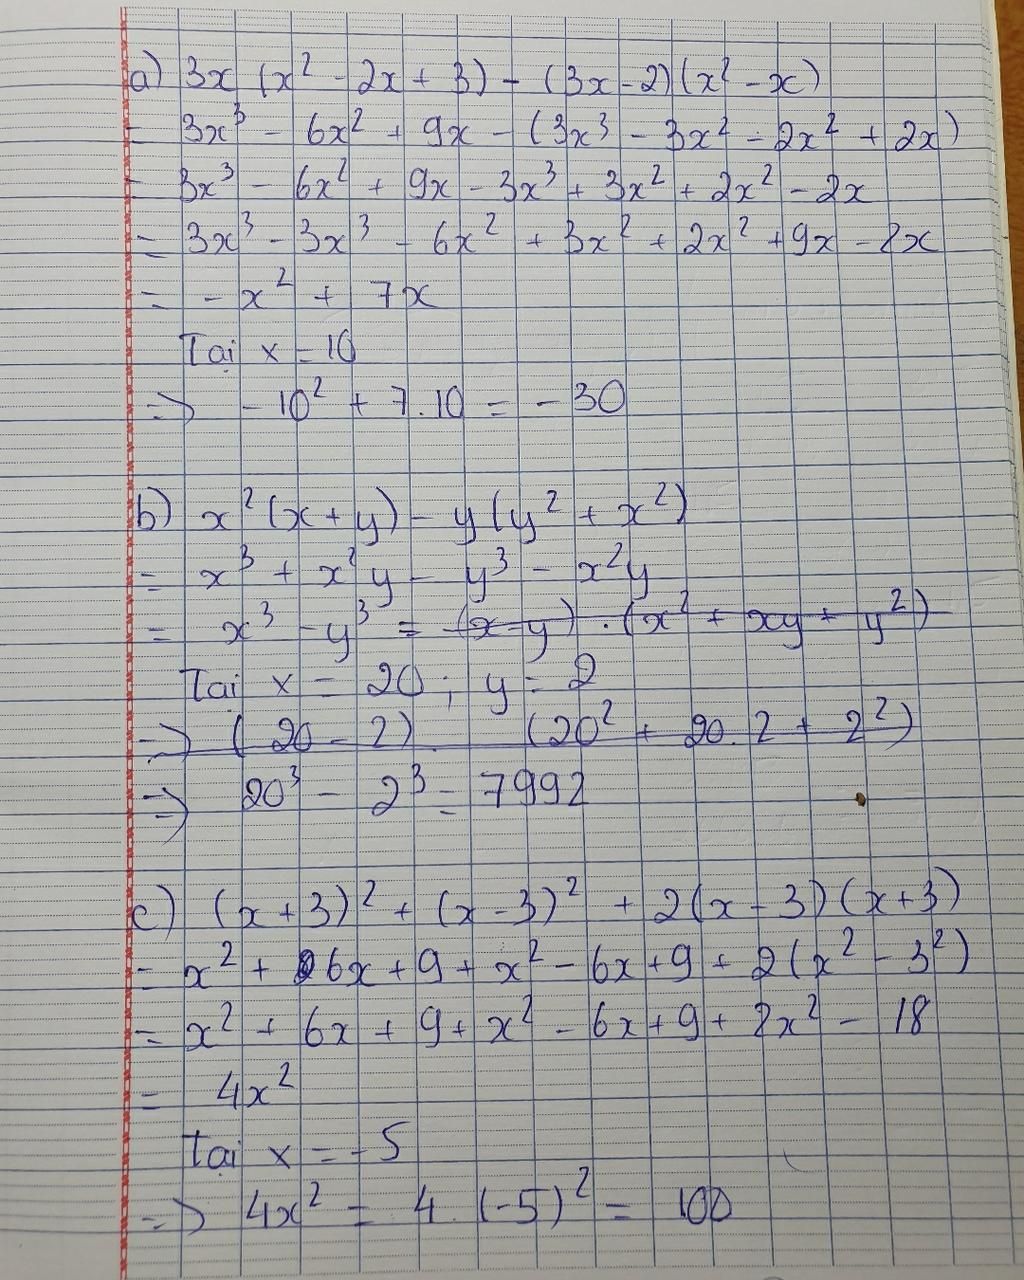 a) 3x (x² - 2x + 3) - (3x - 2)(x² - x)
= 3x³ - 6x² + 9x - (3x³ - 3x² - 2x² + 2x)
= 3x³ - 6x² + 9x - 3x³ + 3x² + 2x² - 2x
= 3x³ - 3x³ - 6x² + 3x² + 2x² + 9x - 2x
= - x² + 7x
Tại x = 10
=> - 10² + 7.10 = - 30
b) x² (x + y) - y (y² + x²)
= x³ + x²y - y³ - x²y
= x³ - y³ = (x - y) . (x² + xy + y²)
Tại x = 20 ; y = 2
=> (20 - 2) . (20² + 20.2 + 2²)
=> 20³ - 2³ = 7992
c) (x + 3)² + (x - 3)² + 2(x - 3)(x + 3)
= x² + 6x + 9 + x² - 6x + 9 + 2(x² - 3²)
= x² + 6x + 9 + x² - 6x + 9 + 2x² - 18
= 4x²
Tại x = - 5
=> 4x² = 4 . (-5)² = 100